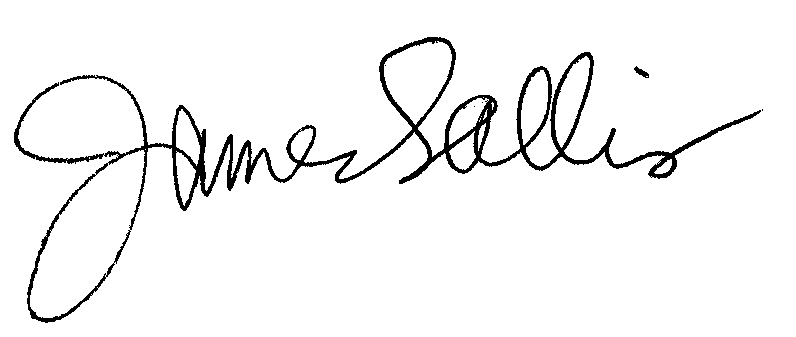 James Sallis